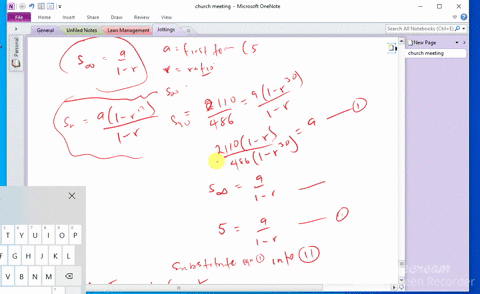 church meeting - Microsoft OneNote
FILE HOME INSERT DRAW HISTORY REVIEW VIEW
General Unfiled Notes Laws Management Jottings
Search All Notebooks (Ctrl+E)
Personal
New Page
church meeting
S∞ = a/(1-r)
a: first term (5
r = ratio
S∞
Sₙ = a(1-rⁿ)/(1-r)
S₃₀ = 2110/486 = a(1-r³⁰)/(1-r)
2110(1-r)/486(1-r³⁰) = a — ①
S∞ = a/(1-r) —
5 = a/(1-r) — ①
substitute eqn ① into ⑪
T Y U I O P
F G H J K L
V B N M